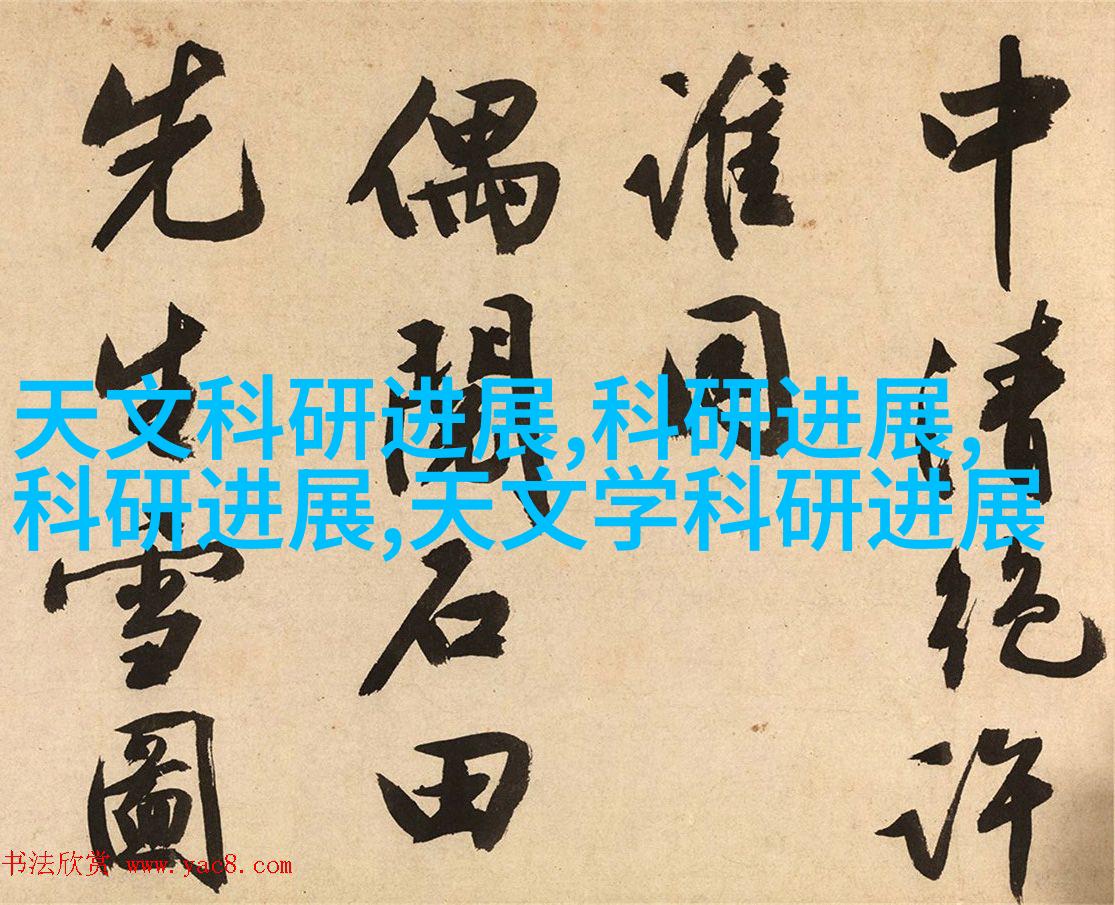 中清絶許
誰同
偶閲石田
先生雪圖
天文科研进展,科研进展,
科研进展,天文学科研进展
书法欣赏 www.yac8.com